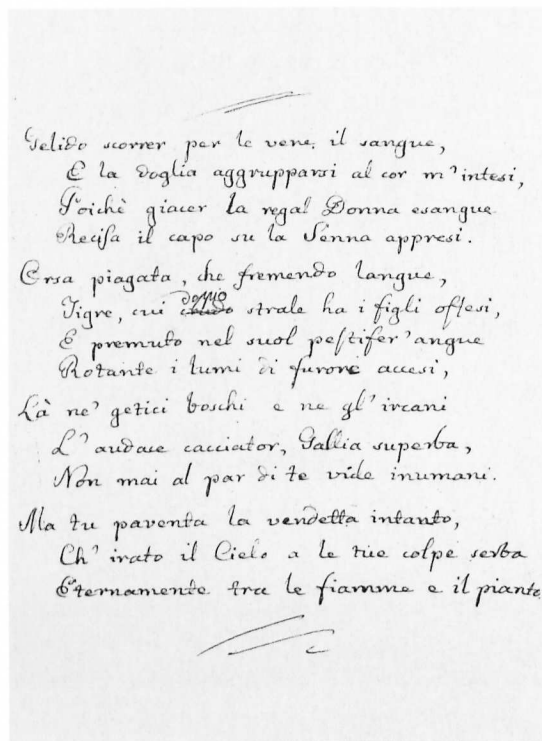 Gelido scorrer per le vene, il sangue,
E la doglia aggrupparsi al cor m'intesi,
Poichè giacer la regal Donna esangue
Recisa il capo su la Senna appresi.
Orsa piagata, che fremendo langue,
Tigre, cui doppio strale ha i figli offesi,
E premuto nel suol pestifer'angue
Rotante i lumi di furore accesi,
Là ne' getici boschi e ne gl'ircani
L'audace cacciator, Gallia superba,
Non mai al par di te vide inumani.
Ma tu paventa la vendetta intanto,
Ch'irato il Cielo a le tue colpe serba
Eternamente tra le fiamme e il pianto.